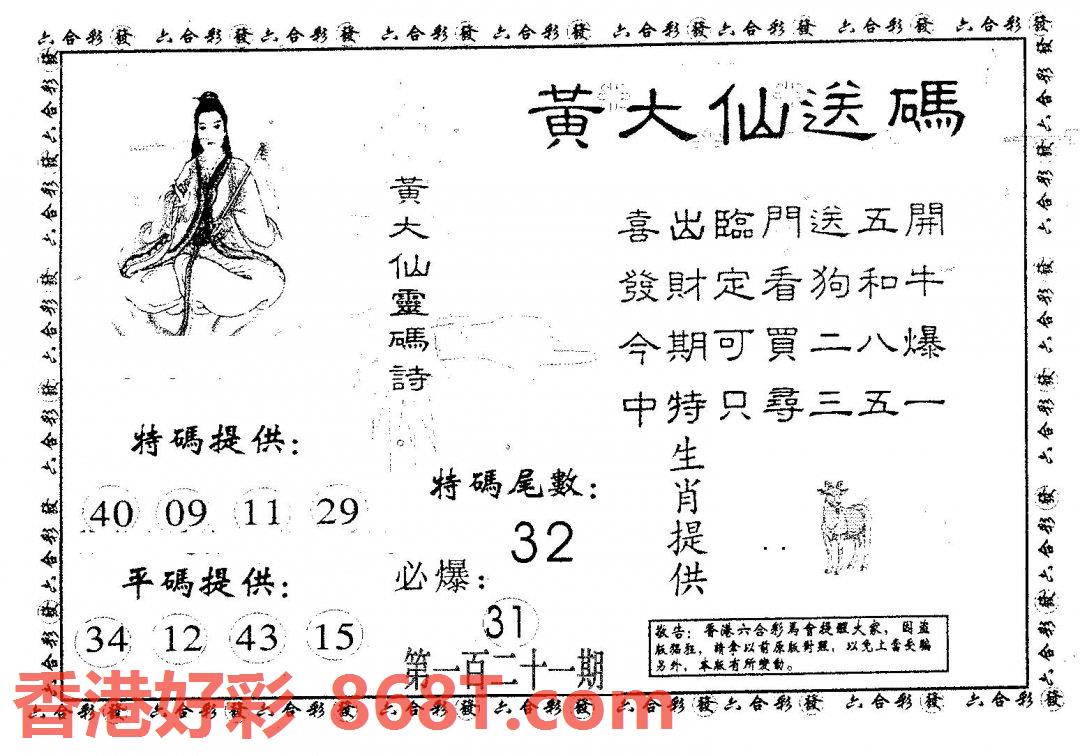 六合彩發 六合彩發六合彩發 六合彩發六合彩發 六合彩發六合彩發 六合彩發 六合彩發
黃大仙送碼
黃大仙靈碼詩
喜出臨門送五開
發財定看狗和牛
今期可買二八爆
中特只尋三五一
特碼提供：
40 09 11 29
平碼提供：
34 12 43 15
特碼尾數：
32
必爆：
31
第一百二十一期
生肖提供
敬告：香港六合彩馬會提醒大家，因盜
版猖狂，請拿以前原版對照，以免上當受騙
另外，本版有所變動。
香港好彩 868T.com